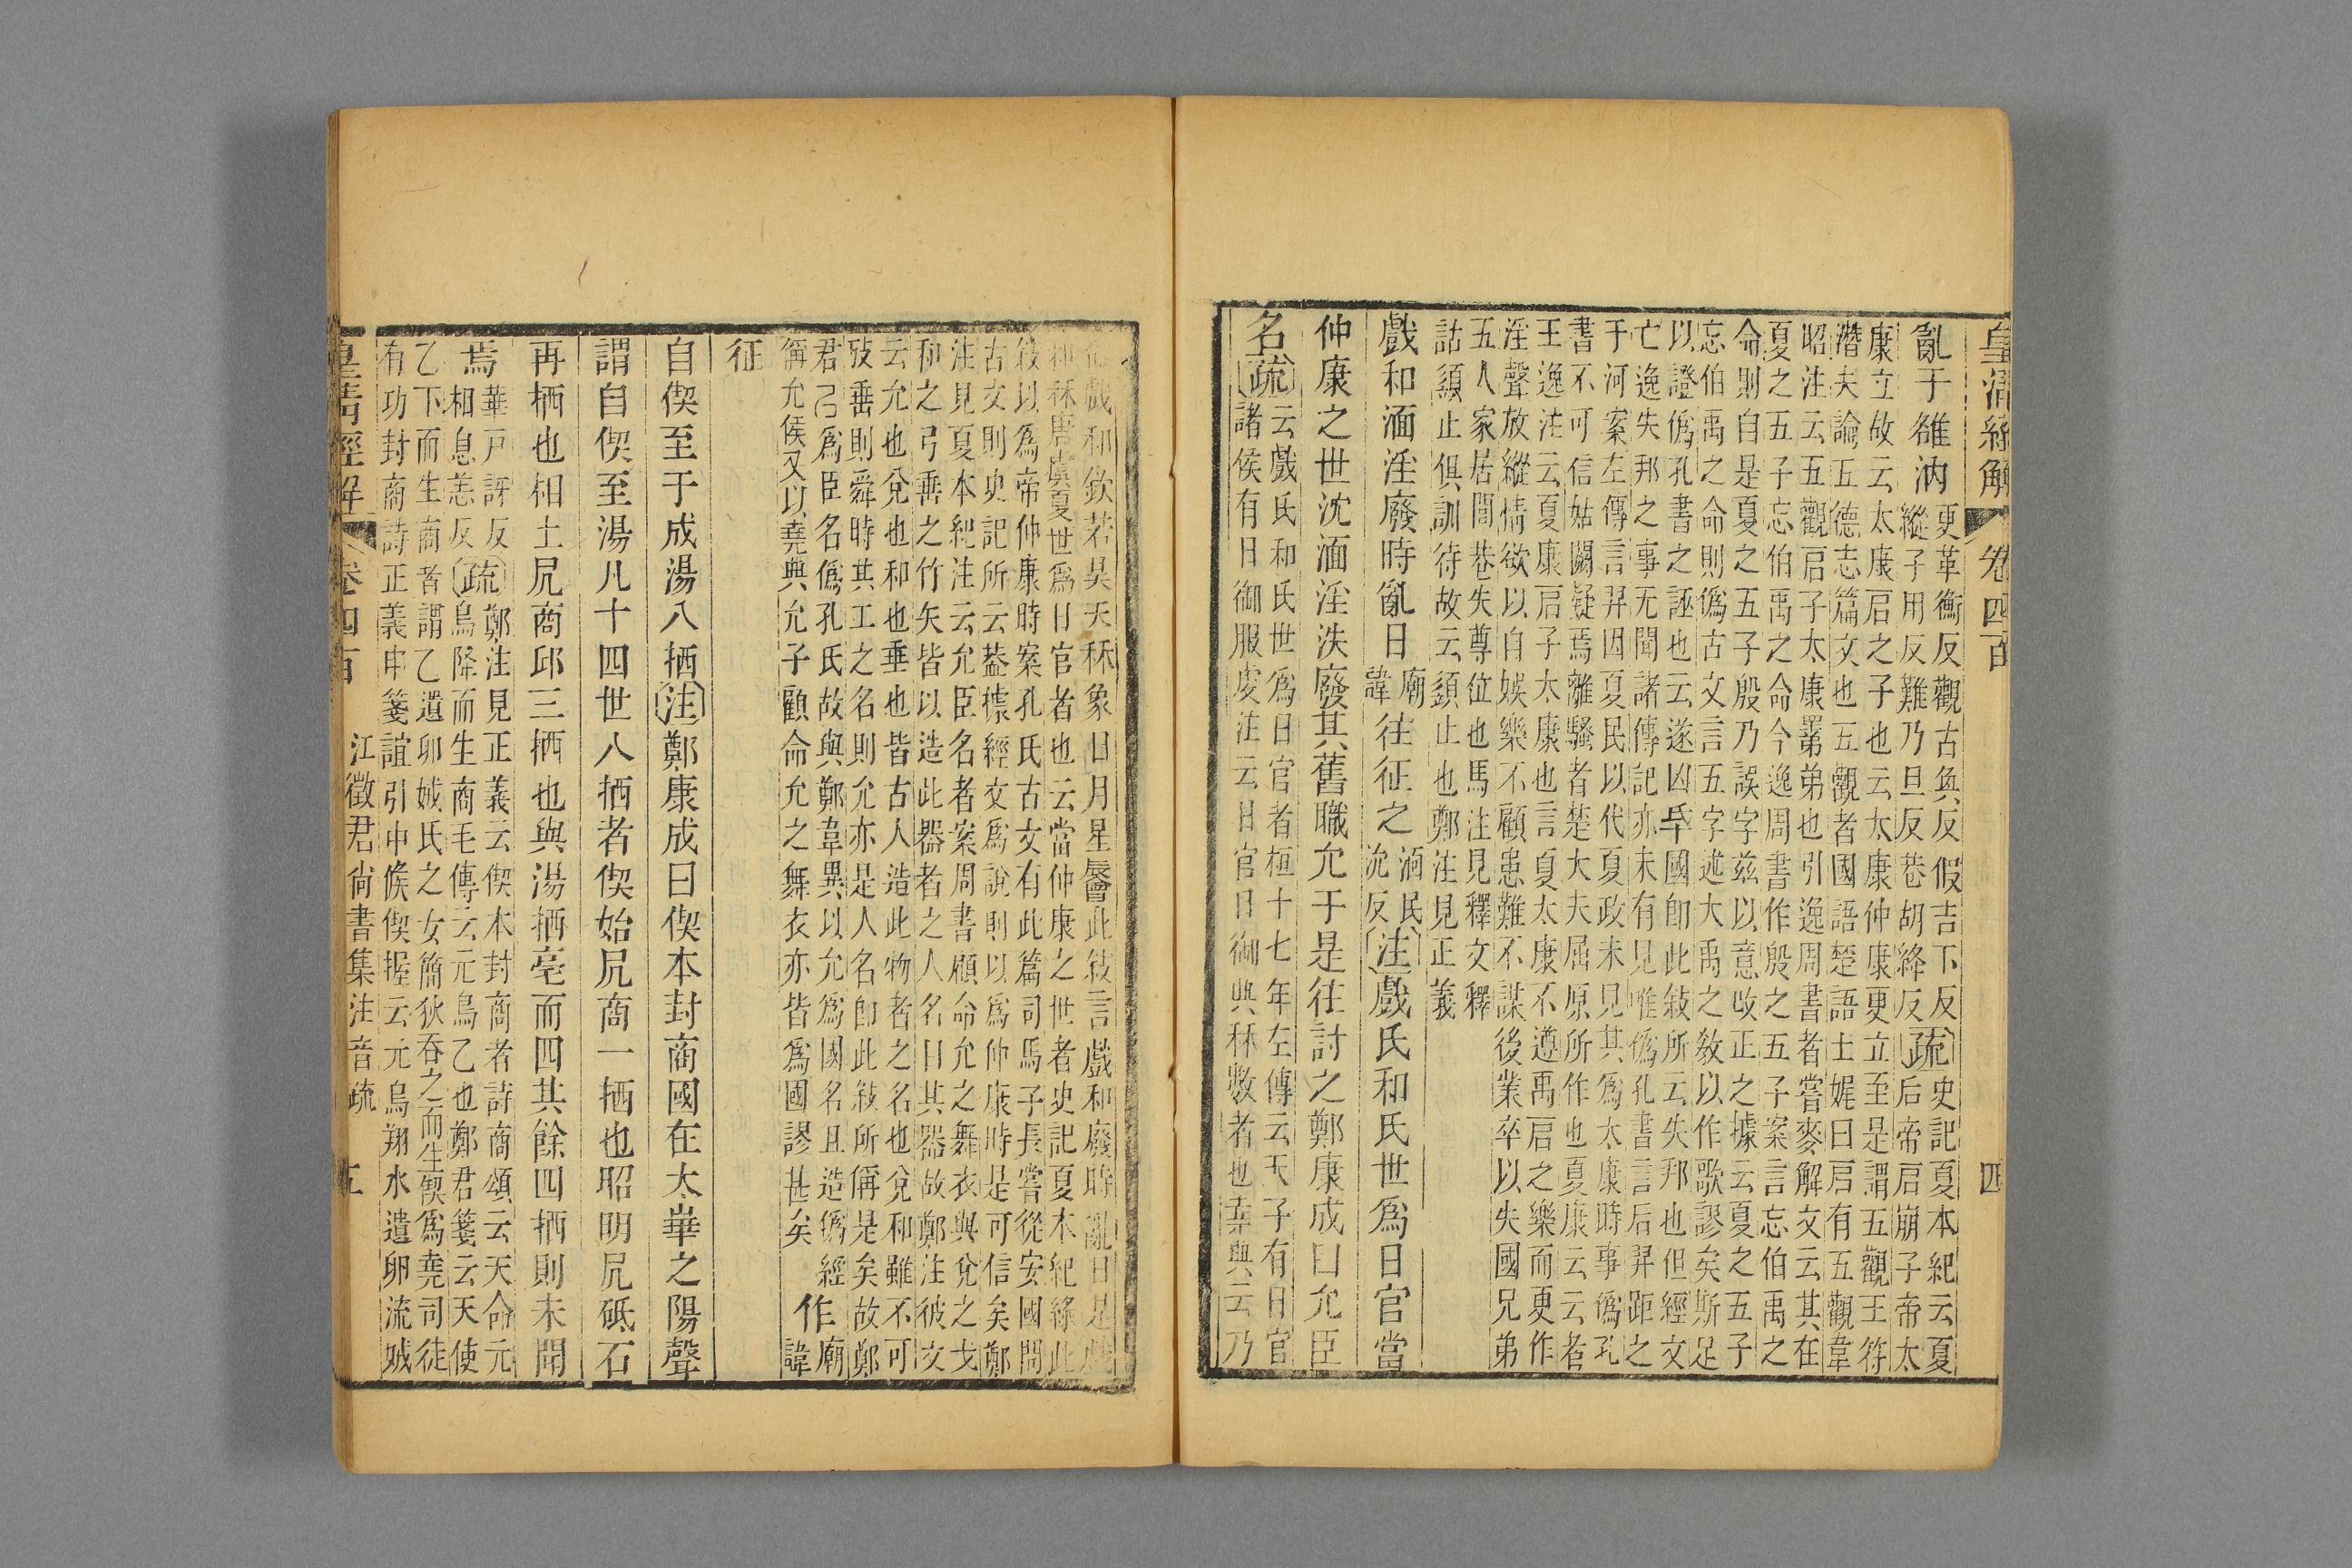 皇清經解 卷四百 四
亂于雒汭
更革衡反觀古奐反假吉下反
縱子用反難乃旦反巷胡絳反
疏
史記夏本紀云夏
后帝启崩子帝太
康立故云太康启之子也云太康仲康更立至是謂五觀王符
潛夫論五德志篇文也五觀者國語楚語士娓曰启有五觀韋
昭注云五觀启子太康㬪弟也引逸周書者嘗麥解文云其在
夏之五子忘伯禹之命今逸周書作殷之五子案言忘伯禹之
命則自是夏之五子殷乃誤字兹以意改正之據云夏之五子
忘伯禹之命則僞古文言五字述大禹之敎以作歌謬矣斯足
以證僞孔書之誣也云遂凶乎國卽此敍所云失邦也但經文
亡逸失邦之事无聞諸傳記亦未有見唯僞孔書言后羿距之
于河案左傳言羿因夏民以代夏政未見其爲太康時事僞孔
書不可信姑闕疑焉離騷者楚大夫屈原所作也夏康云云者
王逸注云夏康启子太康也言夏太康不遵禹启之樂而更作
淫聲放縱情欲以自娛樂不顧患難不謀後業卒以失國兄弟
五人家居閭巷失尊位也馬注見釋文釋
詁䇓止俱訓待故云䇓止也鄭注見正義
戲和湎淫廢時亂日
廟
諱
往征之
湎民
沇反
注
戲氏和氏世爲日官當
仲康之世沈湎淫泆廢其舊職允于是往討之鄭康成曰允臣
名
疏
云戲氏和氏世爲日官者桓十七年左傳云天子有日官
諸侯有日御服虔注云日官日御典秝數者也堯典云乃
命戲和欽若昊天秝象日月星辰會此敍言戲和廢時亂日是戲
和秝唐虞夏世爲日官者也云當仲康之世者史記夏本紀綠此
敍以爲帝仲康時案孔氏古文有此篇司馬子長嘗從安國問
古文則史記所云葢據經文爲說則以爲仲康時是可信矣鄭
注見夏本紀注云允臣名者案周書顧命允之舞衣與兌之戈
和之弓垂之竹矢皆以造此器者之人名日其器故鄭注彼文
云允也兌也和也垂也皆古人造此物者之名也兌和雖不可
攷垂則舜時其工之名則允亦是人名卽此敍所偁是矣故鄭
君㠯爲臣名僞孔氏故與鄭韋異以允爲國名且造僞經
稱允侯又以堯典允子顧命允之舞衣亦皆爲國謬甚矣
作
廟
諱
征
自偰至于成湯八栖
注
鄭康成曰偰本封商國在太崋之陽聲
謂自偰至湯凡十四世八栖者偰始凥商一栖也昭明凥砥石
再栖也相土凥商邱三栖也與湯栖亳而四其餘四栖則未聞
焉
華戸䛒反
相息恙反
疏
鄭注見正義云偰本封商者詩商頌云天命元
鳥降而生商毛傳云元鳥乙也鄭君箋云天使
乙下而生商者謂乙遺卵娀氏之女簡狄吞之而生偰爲堯司徒
有功封商詩正義申箋誼引中候偰握云元鳥翔水遺卵流娀
皇清經解 卷四百 江徵君尙書集注音疏 五